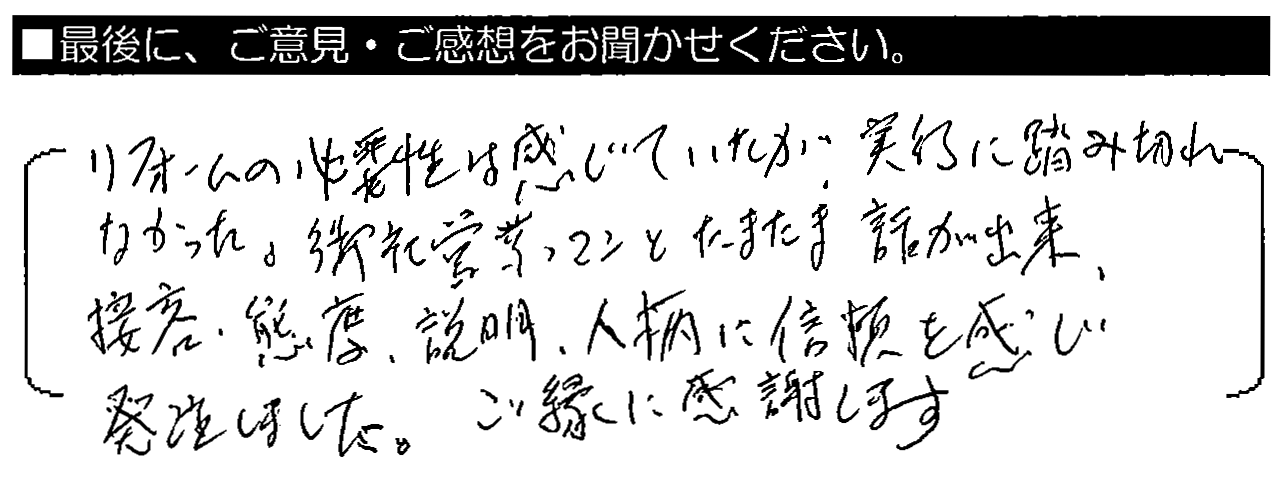 ■最後に、ご意見・ご感想をお聞かせください。
リフォームの必要性は感じていたが、実行に踏み切れ
なかった。御社営業マンとたまたま話が出来、
接客、態度、説明、人柄に信頼を感じ
発注しました。ご縁に感謝します